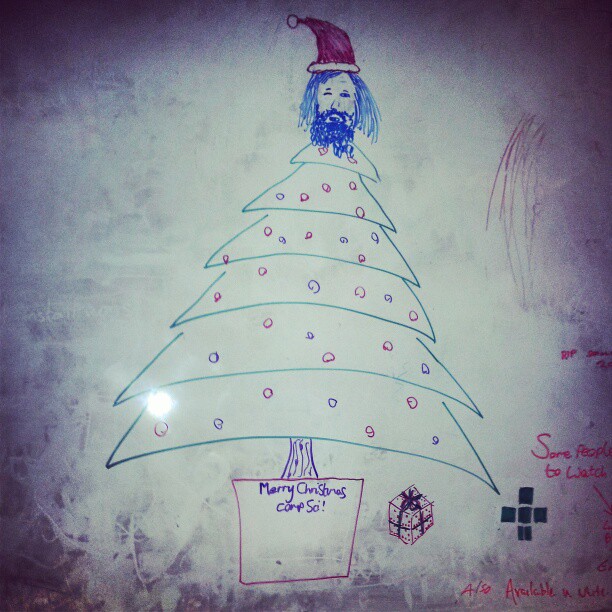 Merry Christmas
compSci!
Some People
to Watch
A/S Available in